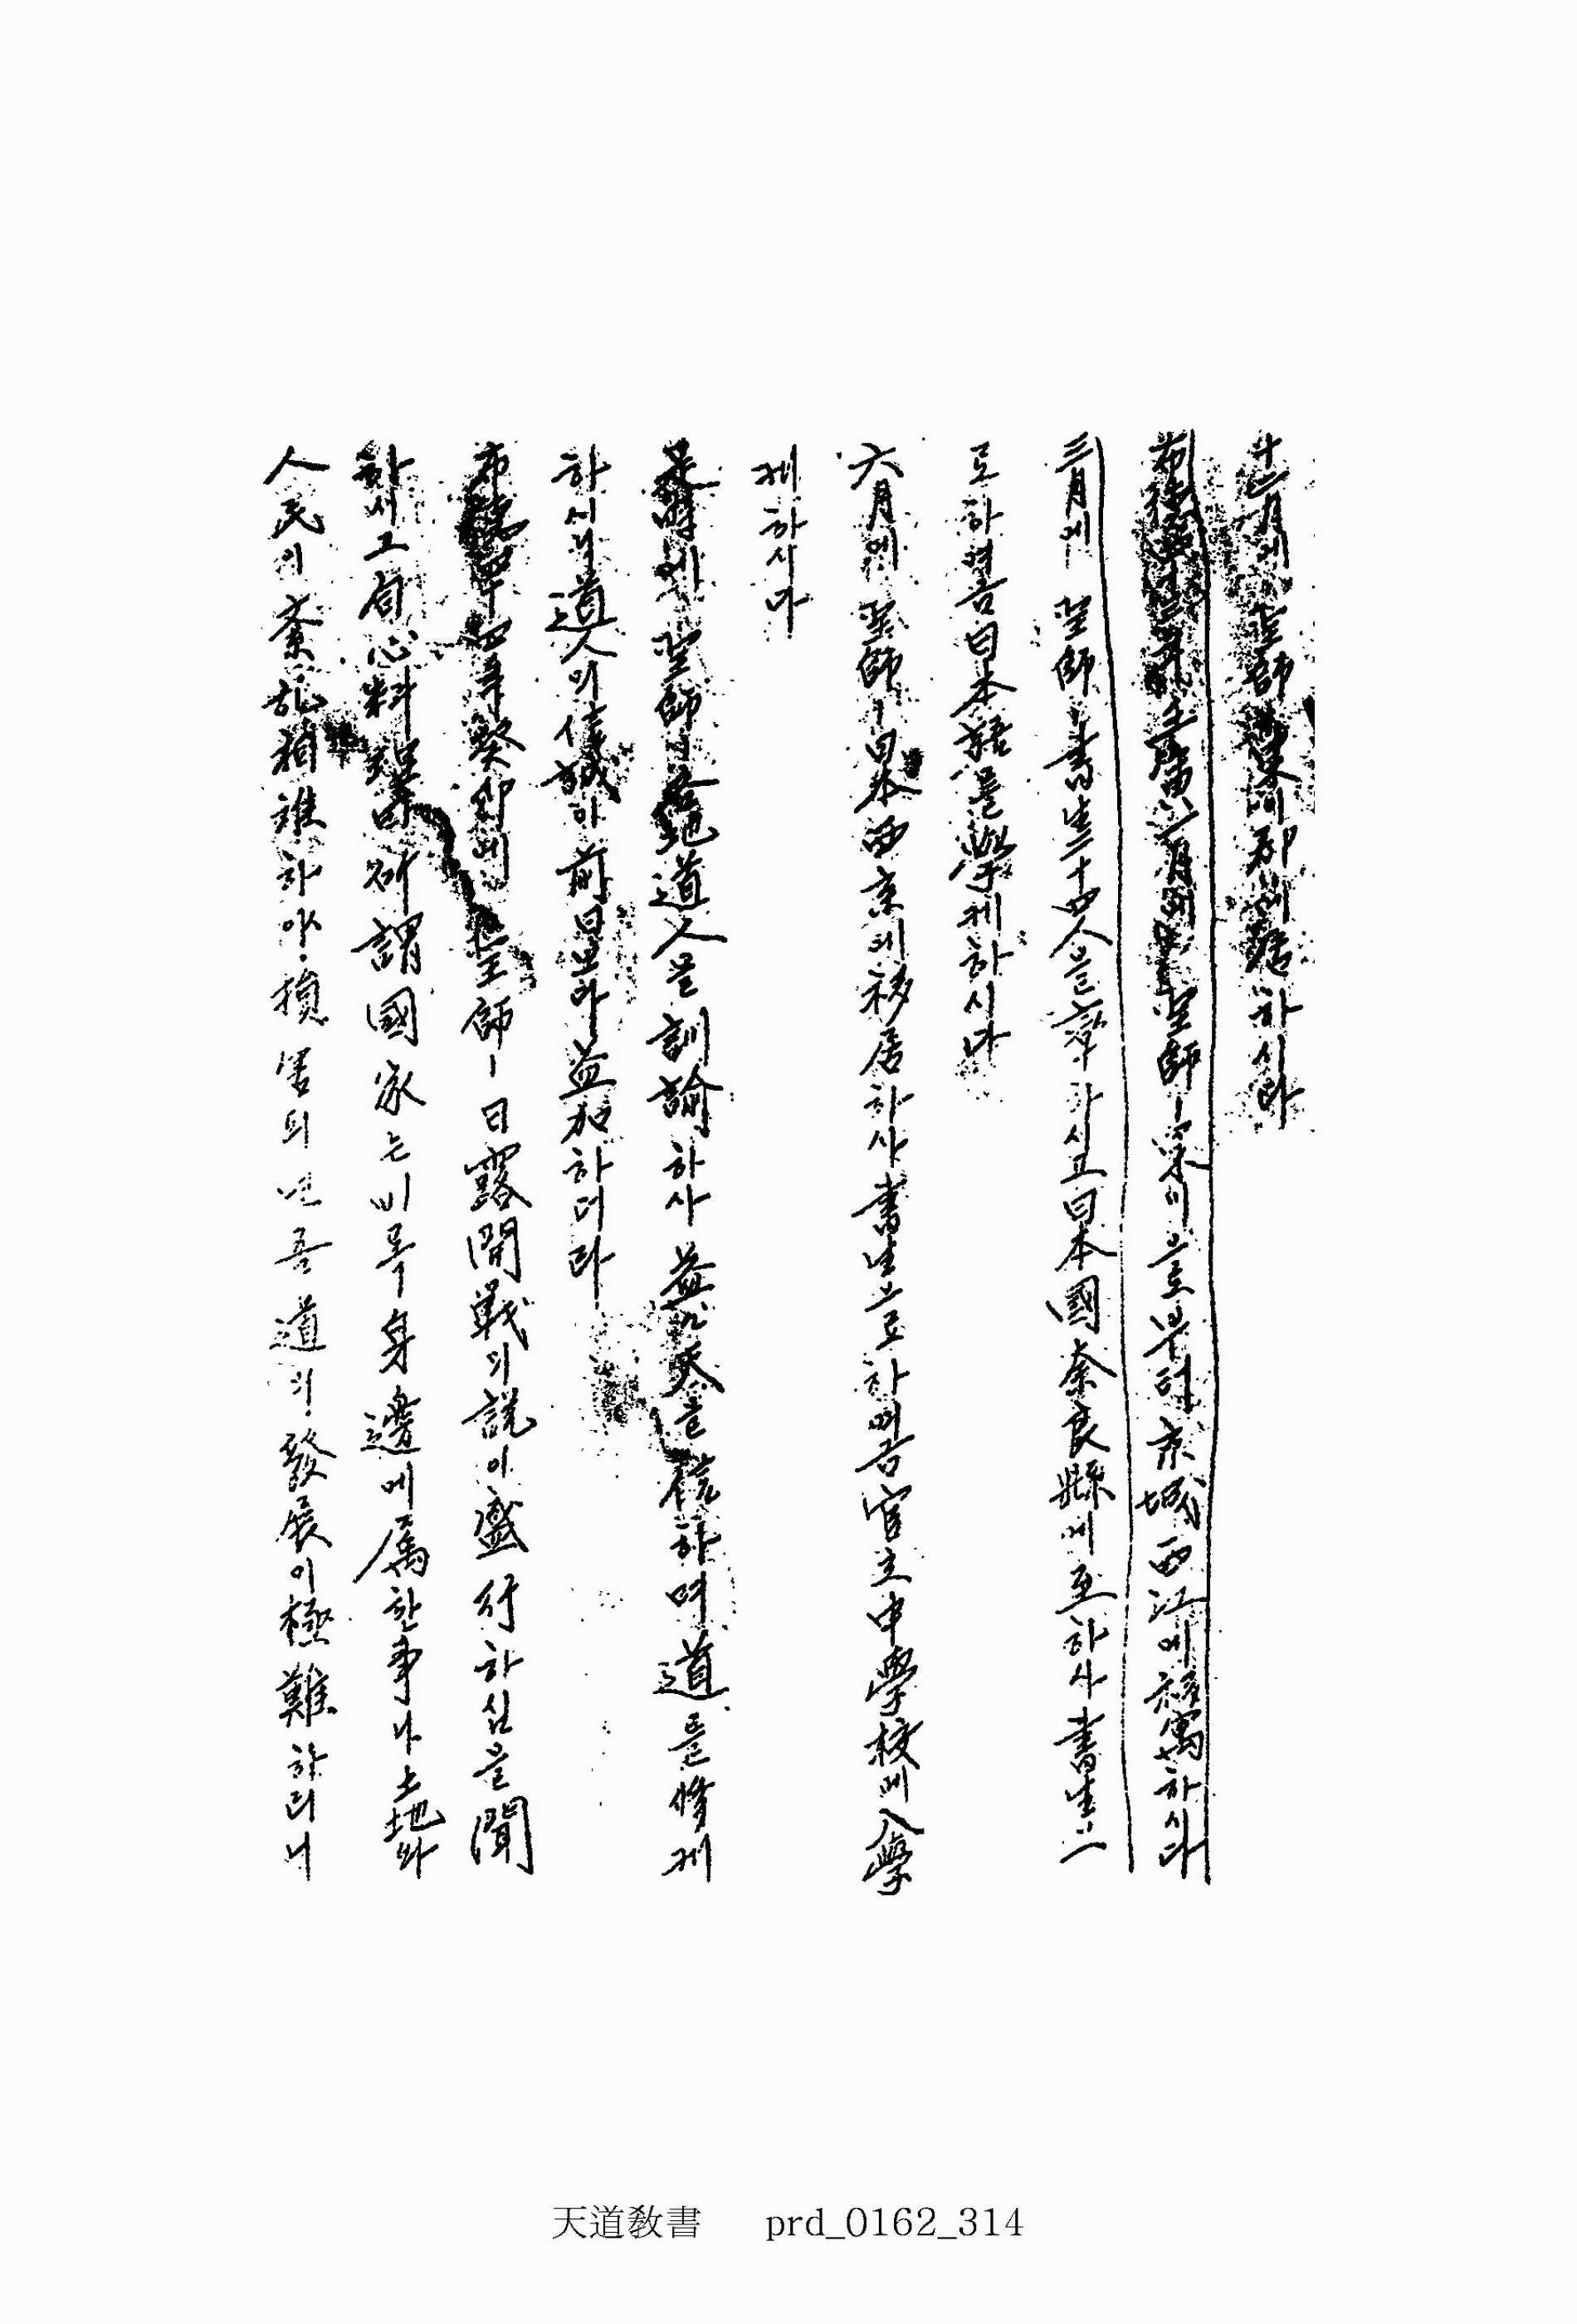 十一月에 聖師 하시다
布德四十三年壬寅 月에 聖師ㅣ 으로부터 京城西江에 移寓하시다
三月에 聖師ㅣ 書生二十四人을 하시고 日本國奈良縣에 至하사 書生으
로 하여금 日本語를 學케 하시다
六月에 聖師ㅣ 日本西京에 移居하사 書生으로 하여금 官立中學校에 入學
케 하시다
是時에 聖師ㅣ 各地道人을 訓諭하사 益々天을 信하며 道를 修케
하시니 道人의 信誠이 前日보다 益加하더라
布德四十四年癸卯에 聖師ㅣ 日露開戰의 說이 盛行하심을 聞
하시고 自心料理曰 所謂國家는 비록 身邊에 屬한 事나 土地와
人民이 紊乱 하야 損害되면 吾道의 發展이 極難하리니
天道敎書 prd_0162_314